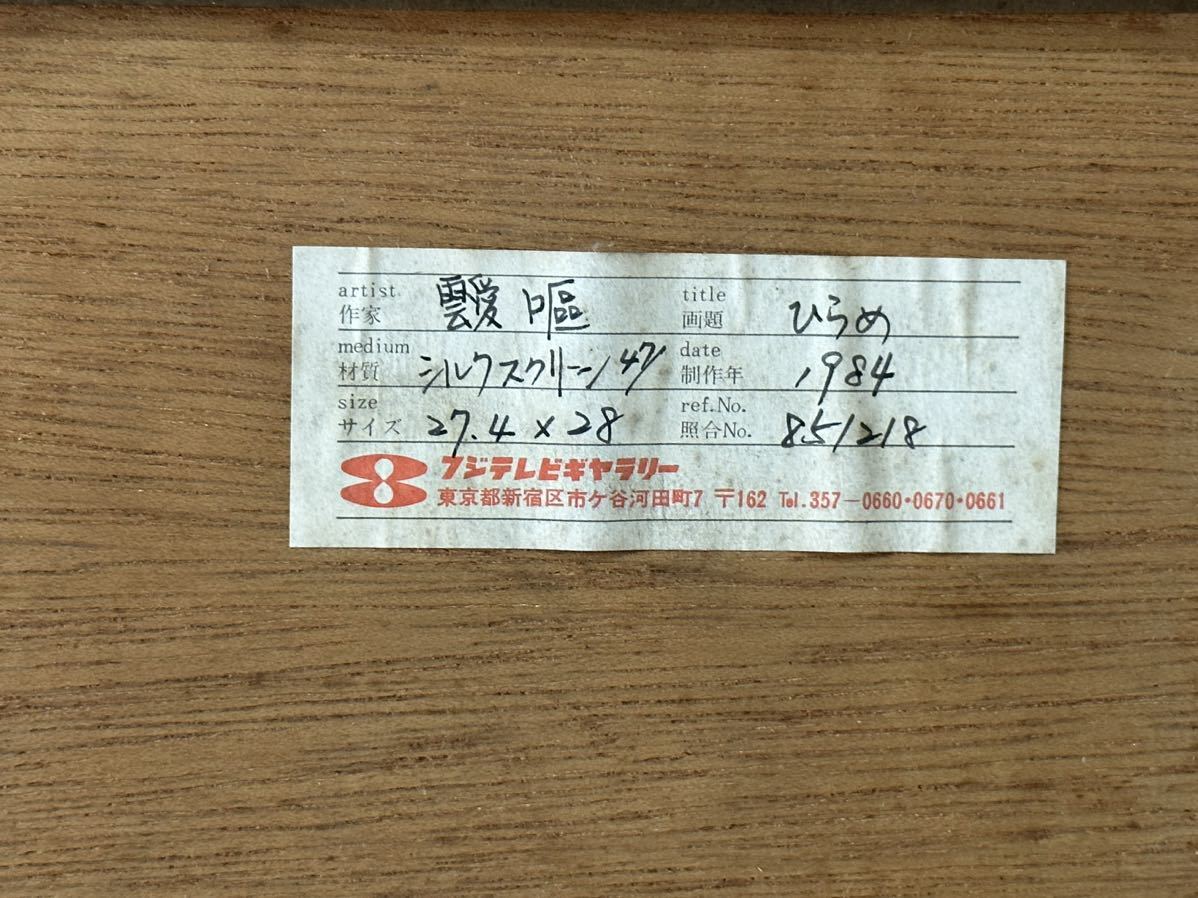 artist
作家 靉嘔
title
画題 ひらめ
medium
材質 シルクスクリーン 47/
date
制作年 1984
size
サイズ 27.4 × 28
ref.No.
照合No. 851218
フジテレビギャラリー
東京都新宿区市ケ谷河田町7 〒162 Tel.357－0660・0670・0661